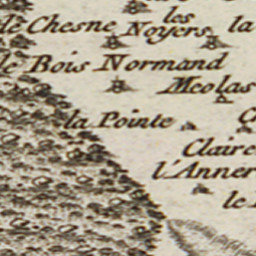 les
le Chesne Noyers la
le Bois Normand
Meolas
la Pointe
Claire
l'Anner
le